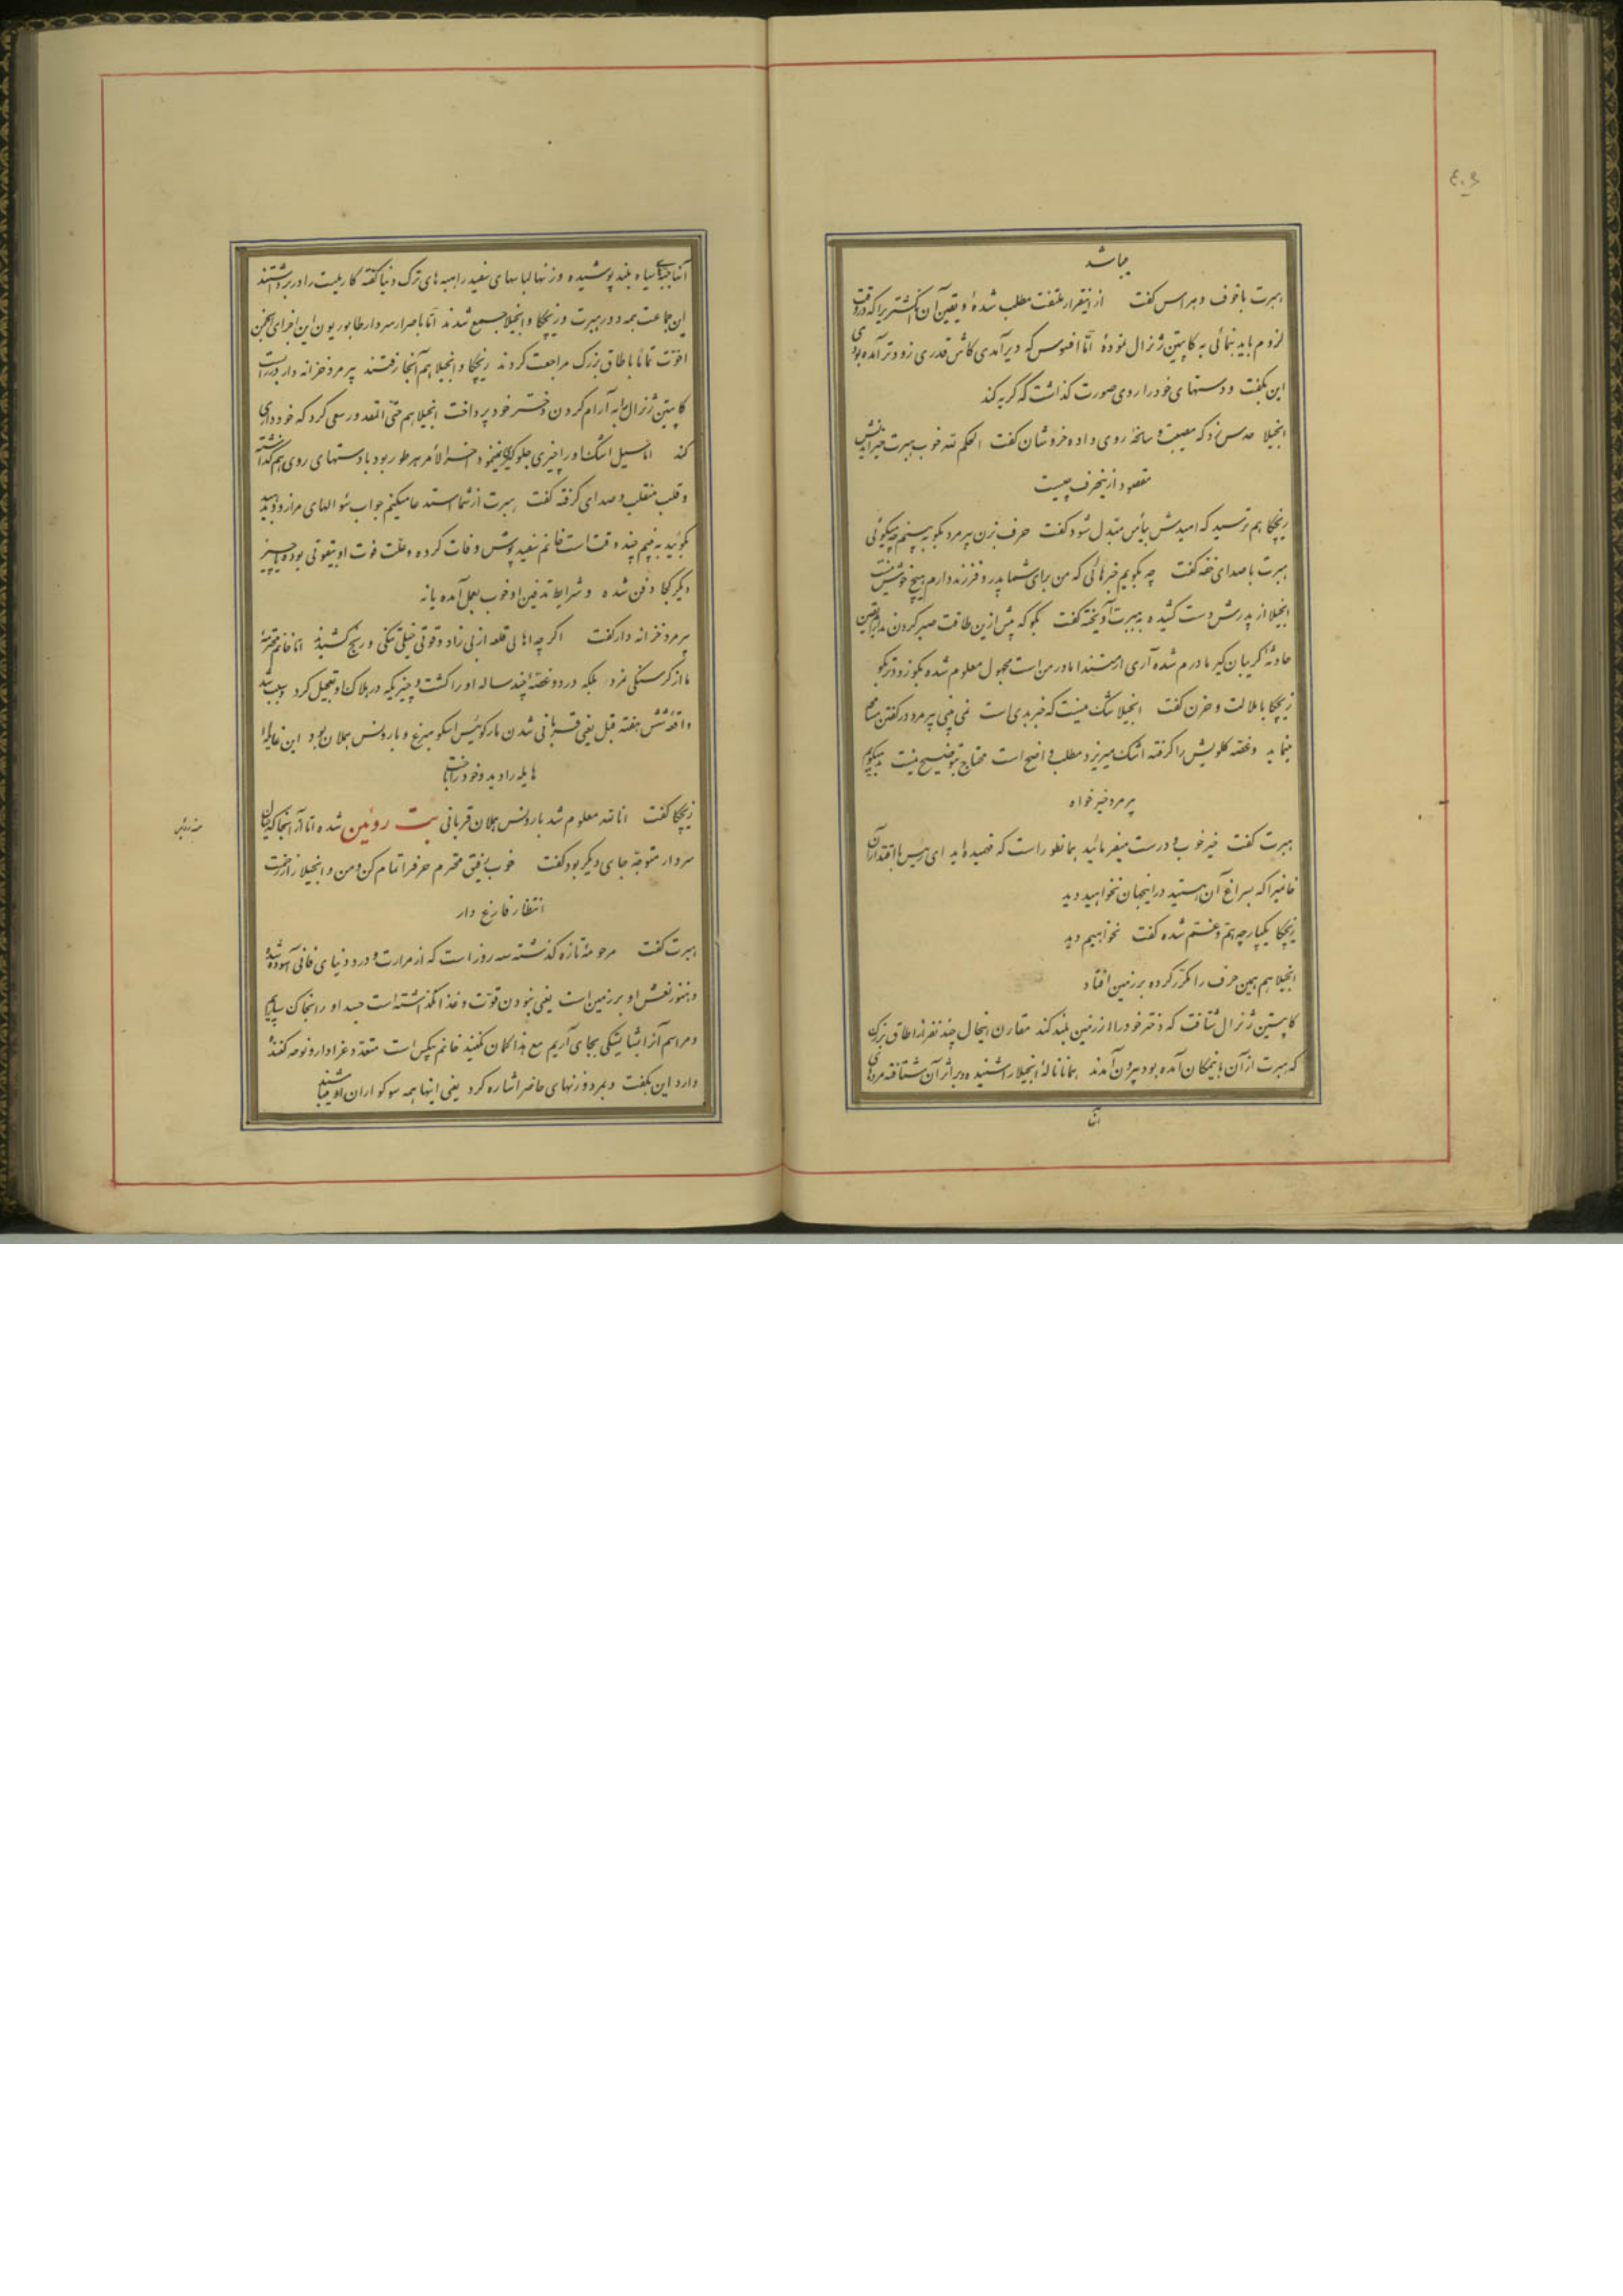 ٤٠٦
میباشد
هبرت باخوف و هراس گفت از اینقرار ملتفت مطلب شدهٔ و یقین آن انگشتریرا که در وقت
لزوم باید بنمائی به کاپیتن ژنرال نمودهٔ امّا افسوس که دیر آمدی کاش قدری زودتر آمده بودی
این بگفت و دستهای خود را روی صورت گذاشت که گریه کند
انجیلا حدس زد که مصیبت و سانحهٔ روی داده خروشان گفت الحکم لله خوب هبرت
مقصود ازینحرف چیست
زیچکا هم ترسید که امیدش بیأس مبدّل شود گفت حرف بزن پیرمرد بگو ببینم چه میگوئی
هبرت با صدای خفه گفت چه بگویم خبرهائی که من برای شما پدر و فرزند دارم هیچ خوش نیست
انجیلا از پدرش دست کشیده به هبرت آویخته گفت بگو که بیش ازین طاقت صبر کردن ندارم یقین
حادثهٔ گریبان گیر مادرم شده آری ارمنتدا مادر من است مجهول معلوم شده بگو زودتر بگو
زیچکا با ملالت و حزن گفت انجیلا شک نیست که خبر بدی است نمی بینی پیرمرد در گفتن مسامحه
مینماید و غصّه گلویش را گرفته اشک میریزد مطلب واضح است محتاج بتوضیح نیست بد میگویم
پیرمرد خیرخواه
هبرت گفت خیر خوب و درست میفرمائید همانطور است که فهمیده‌اید ای رئیس با اقتدار آن
خانمیرا که بسراغ آن هستید در اینجهان نخواهید دید
زیچکا یکپارچه همّ و غم شده گفت نخواهیم دید
انجیلا هم همین حرف را مکرّر کرده بر زمین افتاد
کاپیتن ژنرال شتافت که دختر خود را از زمین بلند کند مقارن اینحال چند نفر از اطاق بزرگ
که هبرت از آن باینمکان آمده بود بیرون آمدند همانا نالهٔ انجیلا را شنیده و بر اثر آن شتافته مردهای
آنها
آنها جبّهٔ سیاه بلند پوشیده و زنها لباسهای سفید راهبه‌های ترک دنیا گفته کارملیت را در برداشتند
این جماعت همه دور هبرت و زیچکا و انجیلا جمع شدند امّا باصرار سردار طابوریون این اجزای انجمن
اخوّت تماماً باطاق بزرگ مراجعت کردند زیچکا و انجیلا هم آنجا رفتند پیرمرد خزانه‌دار
کاپیتن ژنرال به آرام کردن دختر خود پرداخت انجیلا هم حتّی المقدور سعی کرد که خودداری
کند امّا سیل اشک او را چیزی جلوگیری نمینمود آخر الامر هر طور بود با دستهای روی هم گذاشته
و قلب منقلب و صدای گرفته گفت هبرت از شما استدعا میکنم جواب سؤالهای مرا زود بدهید
بگوئید ببینم چند وقت است خانم سفیدپوش وفات کرده و علّت فوت او بیقوتی بوده یا چیز
دیگر کجا دفن شده و شرایط تدفین او خوب بعمل آمده یا نه
پیرمرد خزانه‌دار گفت اگرچه اهالی قلعه از بی زاد و قوتی خیلی تنگی و رنج کشیدند امّا خانم محترمهٔ
ما از گرسنگی نمرد بلکه درد و غصّهٔ چند ساله او را کشت و چیزیکه در هلاک او تعجیل کرد و سبب شد
واقعهٔ شش هفته قبل یعنی قربانی شدن مارکوئیس اسکومبرغ و بارونس هملان بود این
هایله را دید و خود را باخت
زیچکا گفت انا لله معلوم شد بارونس هملان قربانی بت روئین شده امّا از آنجا که
سردار متوجّه جای دیگر بود گفت خوب رفیق محترم حرفرا تمام کن و من و انجیلا را از زحمت
انتظار فارغ دار
هبرت گفت مرحومه تازه گذشته سه روز است که از مرارت و درد دنیای فانی آسوده شده
و هنوز نعش او بر زمین است یعنی نبودن قوّت و غذا نگذاشته است جسد او را بخاک بسپاریم
و مراسم آنرا بشایستگی بجای آریم مع هذا گمان نکنید خانم بیکس است متعدّد عزادار و نوحه کننده
دارد این بگفت و بمرد و زنهای حاضر اشاره کرد یعنی اینها همه سوگواران او میباشند